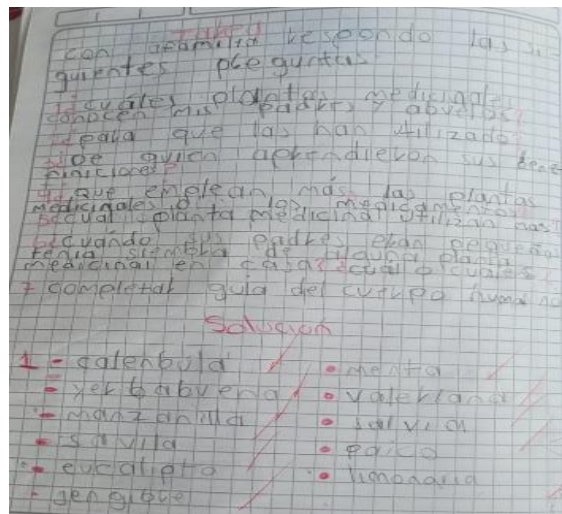 TAREA
con mi familia respondo las si-
guientes preguntas
1 ¿cuáles plantas medicinales
conocen mis padres y abuelos
2 ¿para que las han utilizado
3 ¿De quien aprendieron sus bene
ficiones?
4 ¿que emplean más las plantas
medicinales o los medicamentos
5 ¿cual planta medicinal utilizan mas?
6 ¿cuándo sus padres eran pequeños
tenia siembra de alguna planta
medicinal en casa? ¿cuál o cuáles
7 completar guia del cuerpo humano
Solución
1 - calenbula • menta
- yerbabuena • valeriana
- manzanilla • salvia
- savila • paico
- eucalipto • limonaria
- gengibre